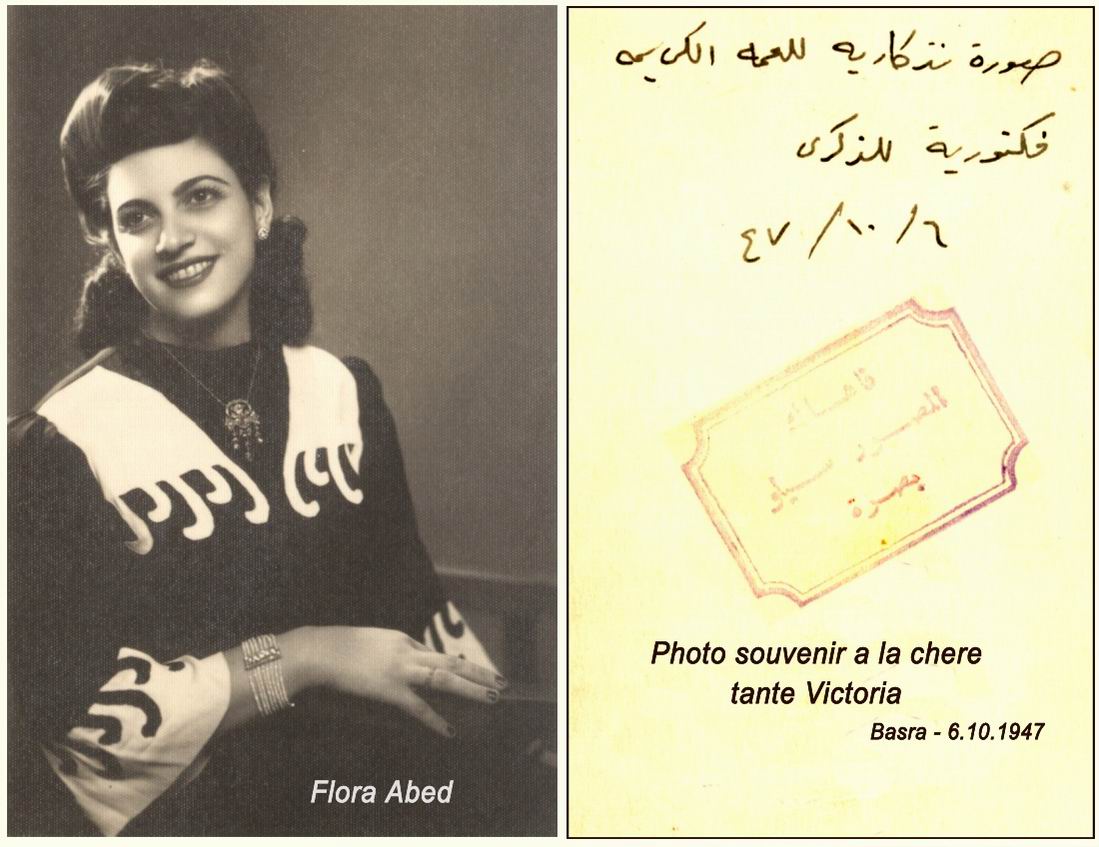 Flora Abed
صورة تذكارية للعمه الكريمه
فكتورية للذكرى
٦/١٠/٤٧
المصور
بصرة
Photo souvenir a la chere
tante Victoria
Basra - 6.10.1947